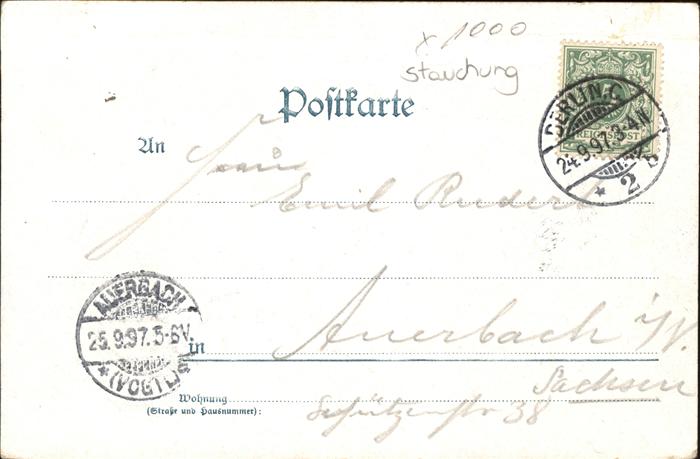 x 1000
Stauchung
Postkarte
REICHSPOST
BERLIN.C
24.9.97.3-4N.
* 2 b
An
Herrn
Emil Ruder
AUERBACH
25.9.97.5-6V.
* (VOGTL)
in
Auerbach i/V.
Sachsen
Wohnung
(Straße und Hausnummer):
Schützenstr 38